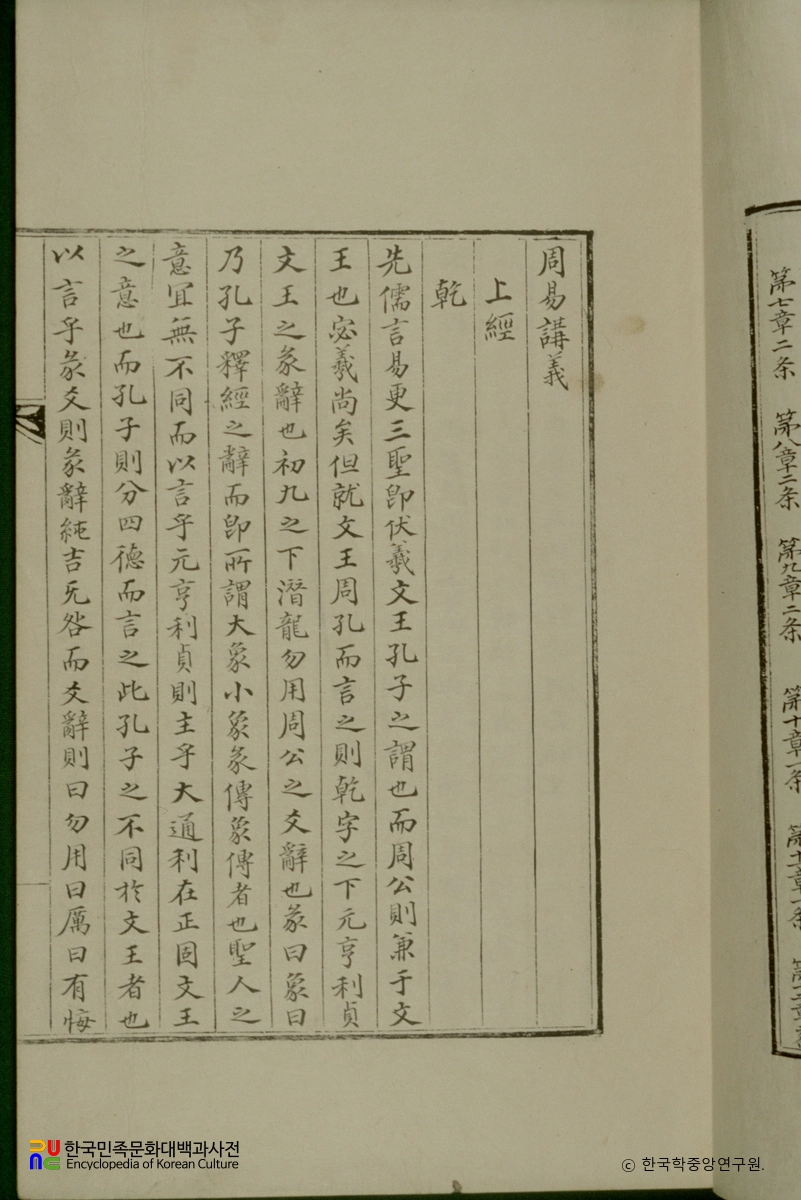 周易講義
上經
乾
先儒言易更三聖卽伏羲文王孔子之謂也而周公則兼于文
王也宓羲尚矣但就文王周孔而言之則乾字之下元亨利貞
文王之彖辭也初九之下潛龍勿用周公之爻辭也彖曰象曰
乃孔子釋經之辭而卽所謂大象小象彖傳象傳者也聖人之
意宜無不同而以言乎元亨利貞則主乎大通利在正固文王
之意也而孔子則分四德而言之此孔子之不同於文王者也
以言乎彖爻則彖辭純吉旡咎而爻辭則曰勿用曰厲曰有悔
第七章二条 第八章十二条 第九章二条 第十章一条 第十一章一条
한국민족문화대백과사전
Encyclopedia of Korean Culture
© 한국학중앙연구원.